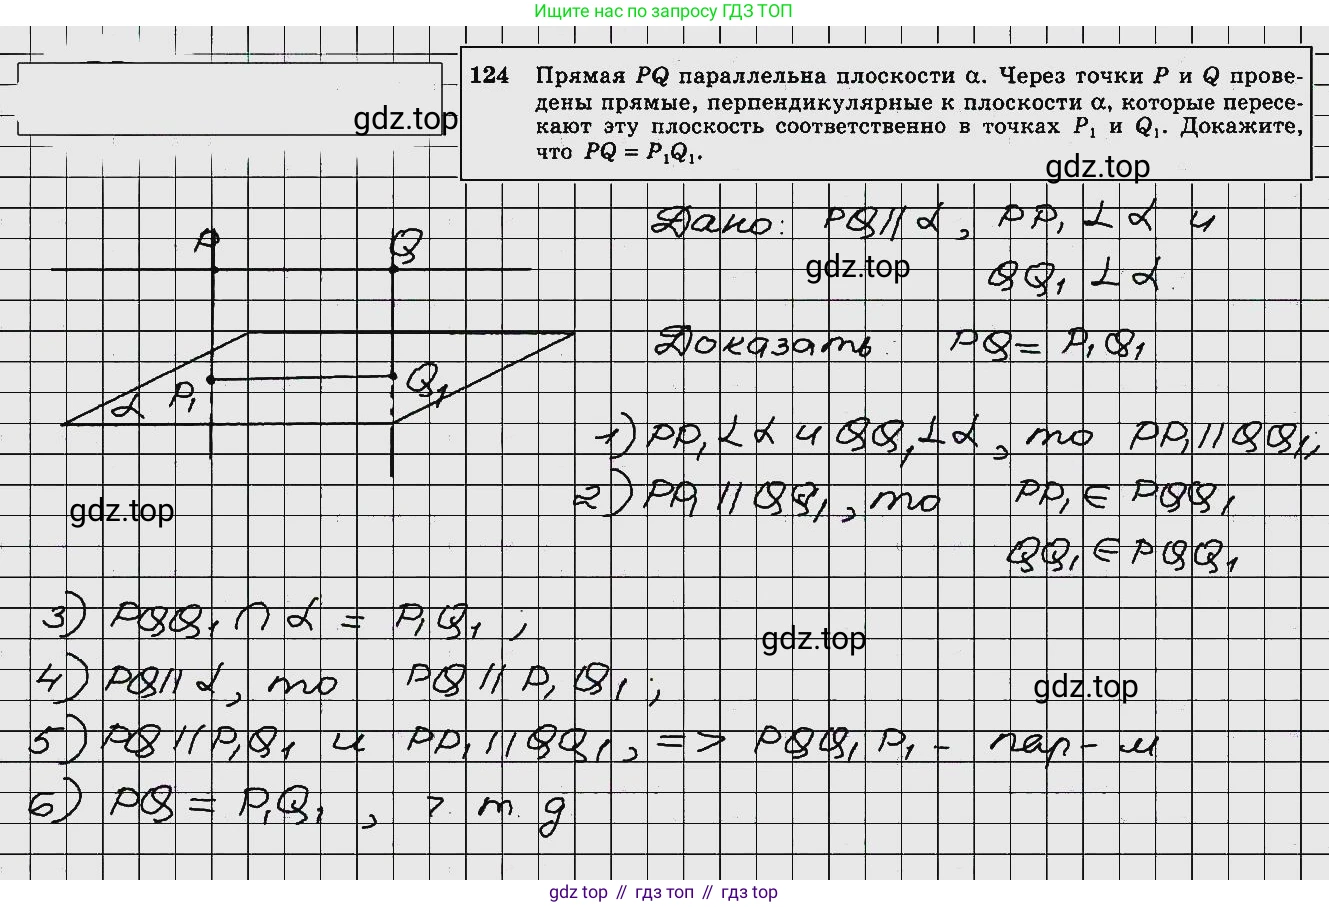 Ищите нас по запросу ГДЗ ТОП
124 Прямая PQ параллельна плоскости α. Через точки P и Q прове-
дены прямые, перпендикулярные к плоскости α, которые пересе-
кают эту плоскость соответственно в точках P₁ и Q₁. Докажите,
что PQ = P₁Q₁.
gdz.top
gdz.top
Дано: PQ || α, PP₁ ⊥ α и
QQ₁ ⊥ α
gdz.top
Доказать PQ = P₁Q₁
P
Q
P₁
Q₁
α
1) PP₁ ⊥ α и QQ₁ ⊥ α, то PP₁ || QQ₁;
2) PP₁ || QQ₁, то PP₁ ∈ PQQ₁
QQ₁ ∈ PQQ₁
gdz.top
3) PQQ₁ ∩ α = P₁Q₁;
gdz.top
4) PQ || α, то PQ || P₁Q₁;
gdz.top
5) PQ || P₁Q₁ и PP₁ || QQ₁, => PQQ₁P₁ - пар-м
6) PQ = P₁Q₁, ч.т.д
gdz top // гдз топ // gdz top